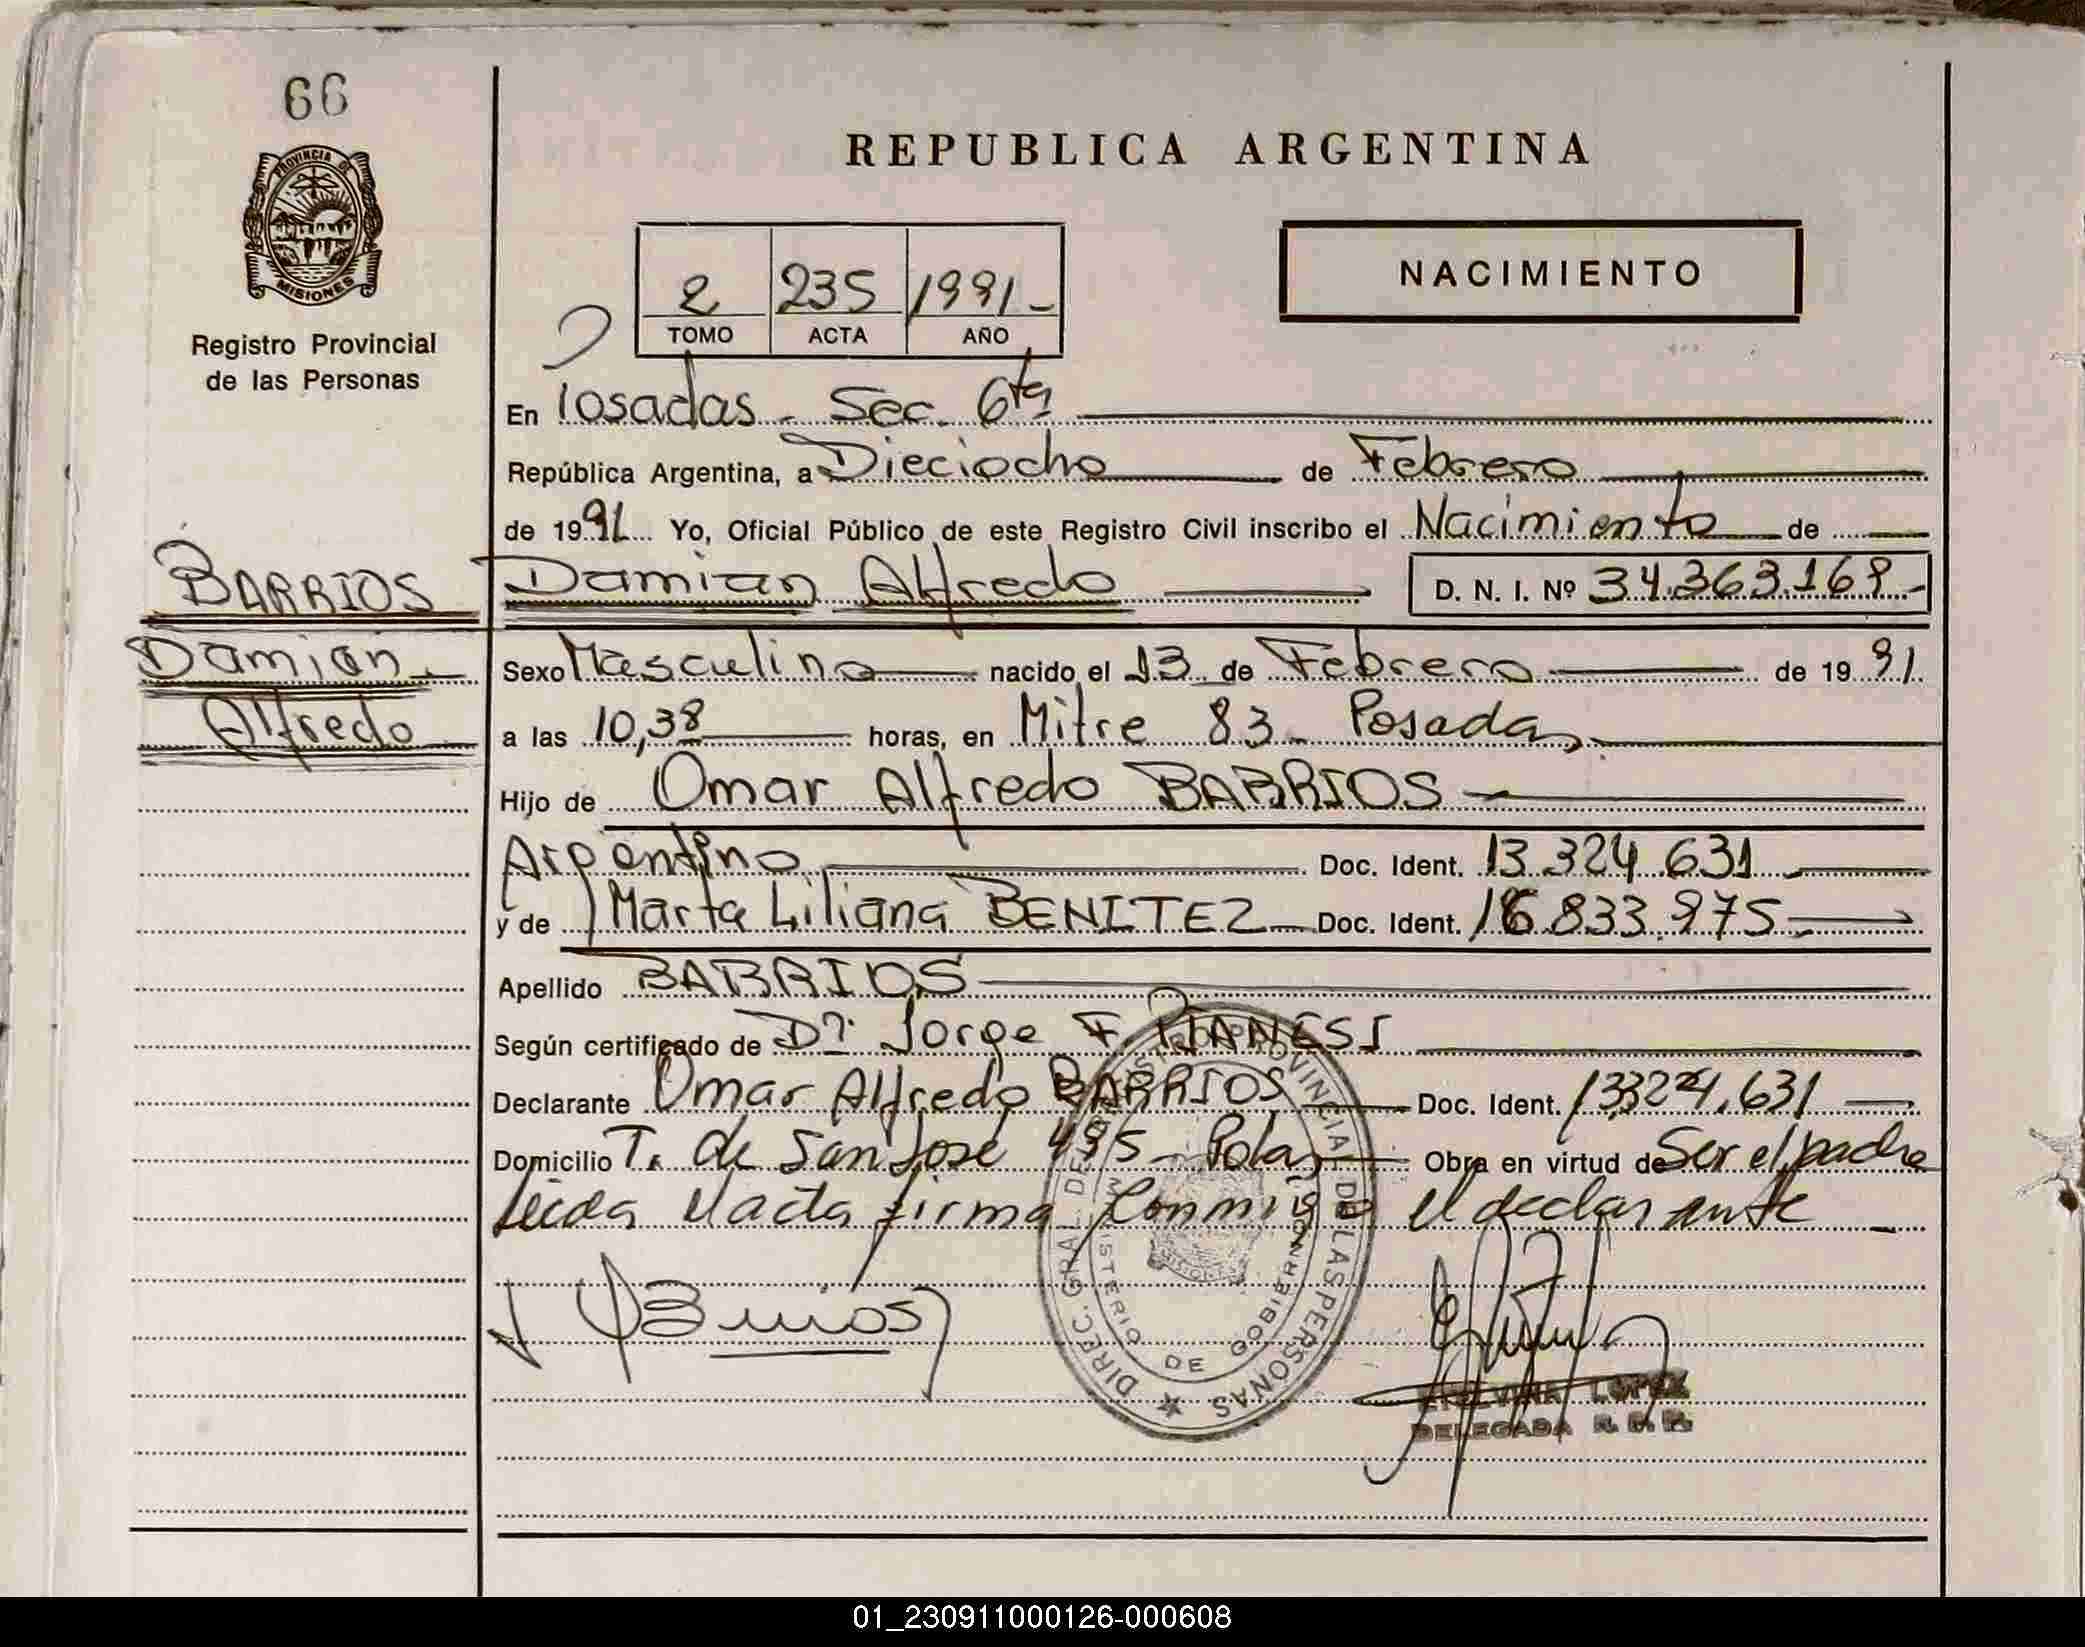 66
REPUBLICA ARGENTINA
PROVINCIA DE
MISIONES
Registro Provincial
de las Personas
2 235 1991-
TOMO ACTA AÑO
NACIMIENTO
En Posadas - Sec. 6ta
República Argentina, a Dieciocho de Febrero
de 1991 Yo, Oficial Público de este Registro Civil inscribo el Nacimiento de
BARRIOS
Damian
Alfredo
Damian Alfredo D. N. I. Nº 34.363.169-
Sexo Masculino nacido el 13 de Febrero de 1991
a las 10,38 horas, en Mitre 83 - Posadas
Hijo de Omar Alfredo BARRIOS
Argentino Doc. Ident. 13.324.631
y de Marta Liliana BENITEZ Doc. Ident. 16.833.975
Apellido BARRIOS
Según certificado de Dr. Jorge F. PIANESI
Declarante Omar Alfredo BARRIOS Doc. Ident. 13324.631
Domicilio T. de San José 495 - Pdas Obra en virtud de Ser el padre
Leida el acta firma conmigo el declarante
DIREC. GRAL. DEL REGISTRO PROVINCIAL DE LAS PERSONAS
MINISTERIO DE GOBIERNO
MISIONES
Barrios
ETELVINA LOPEZ
DELEGADA R. P. P.
01_230911000126-000608